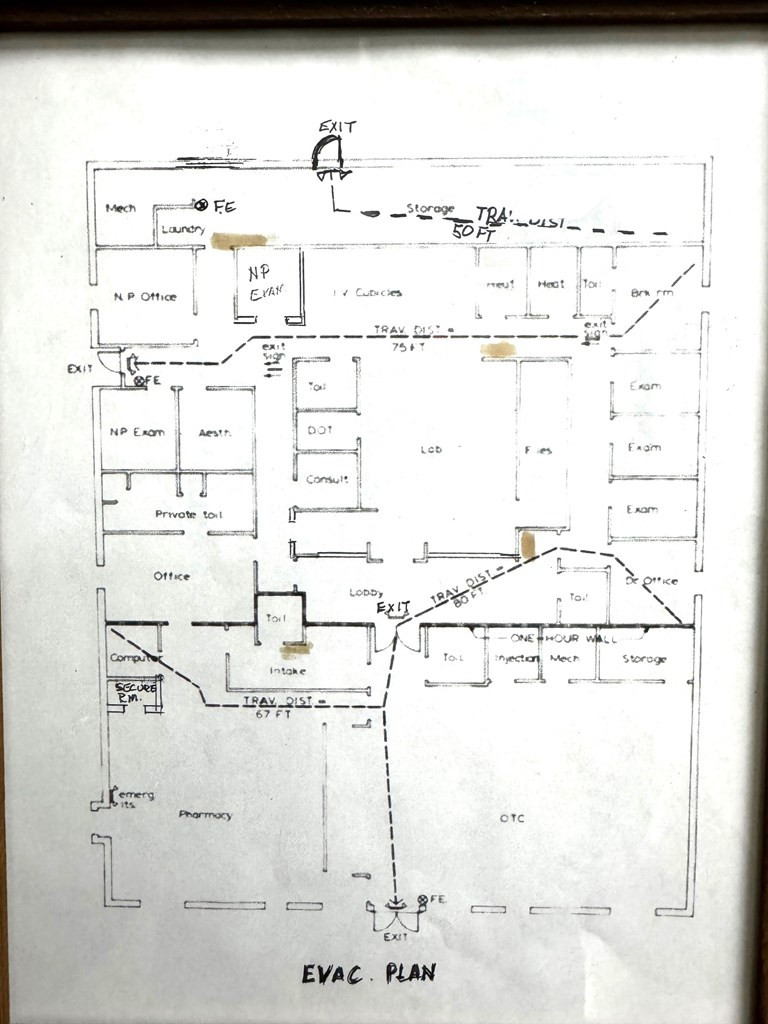 EXIT
Mech
F.E
Storage
TRAV. DIST
50 FT
Laundry
N.P. Office
NP
EXAM
I.V. Cubicles
Heat
Toil
Brk rm
TRAV. DIST =
75 FT
exit
sign
exit
sign
EXIT
F.E
Toil
Exam
N.P. Exam
Aesth.
D.O.T
Lab
Files
Exam
Consult
Private toil
Exam
Office
Lobby
TRAV. DIST =
80 FT
Dr. Office
Toil
EXIT
Toil
ONE-HOUR WALL
Computer
Intake
Toil
Injection
Mech
Storage
SECURE
RM.
TRAV. DIST =
67 FT
emerg
lts.
Pharmacy
OTC
F.E.
EXIT
EVAC. PLAN